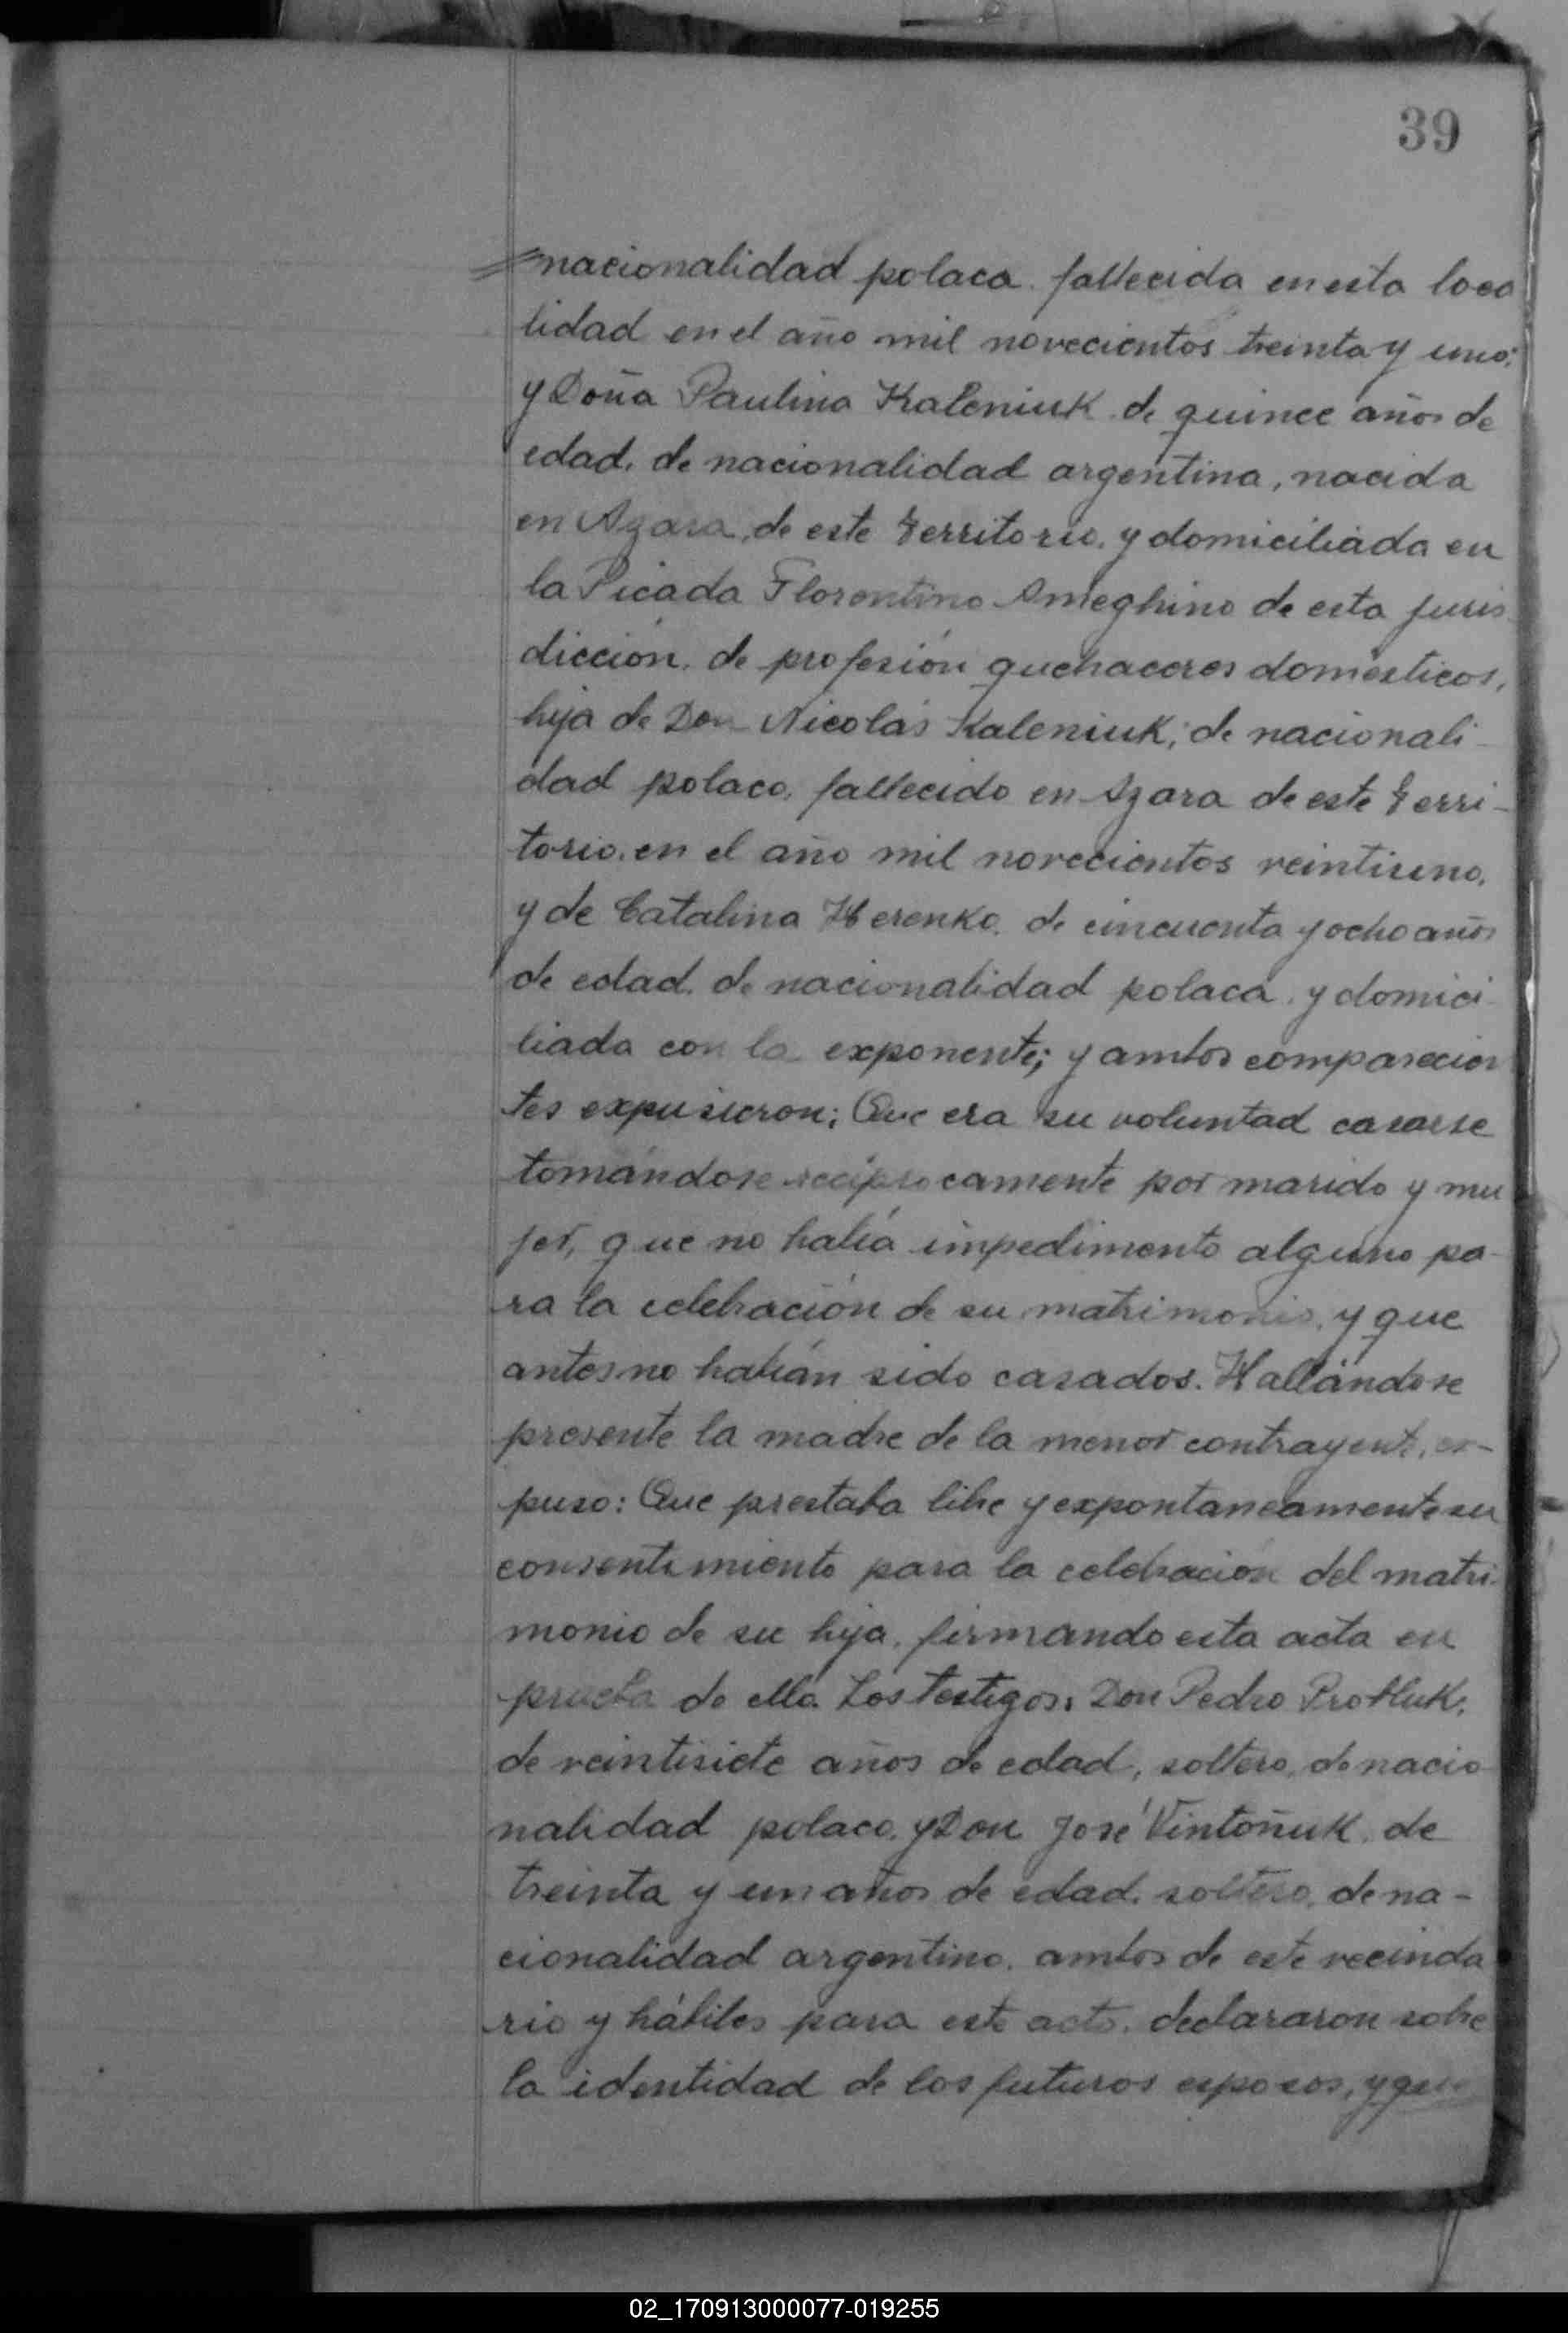 39
nacionalidad polaca. fallecida en esta loca
lidad en el año mil novecientos treinta y uno;
y Doña Paulina Kaleniuk. de quince años de
edad, de nacionalidad argentina, nacida
en Azara, de este Territorio, y domiciliada en
la Picada Florentino Ameghino de esta juris
dicción. de profesión quehaceres domésticos,
hija de Don Nicolás Kaleniuk; de nacionali-
dad polaco, fallecido en Azara de este Terri-
torio, en el año mil novecientos veintiuno,
y de Catalina Herenko. de cincuenta y ocho años
de edad. de nacionalidad polaca, y domici
liada con la exponente; y ambos comparecien
tes expusieron: Que era su voluntad casarse
tomándose recíprocamente por marido y mu
jer, que no había impedimento alguno pa-
ra la celebración de su matrimonio, y que
antes no habían sido casados. Hallándose
presente la madre de la menor contrayente, ex-
puso: Que prestaba libre y expontaneamente su
consentimiento para la celebración del matri-
monio de su hija, firmando esta acta en
prueba de ello. Los testigos: Don Pedro Probluk,
de veintisiete años de edad, soltero, de nacio
nalidad polaco, y Don José Vintoñuk. de
treinta y un años de edad, soltero, de na-
cionalidad argentino. ambos de este vecinda
rio y hábiles para este acto. declararon sobre
la identidad de los futuros esposos, y que
02_170913000077-019255